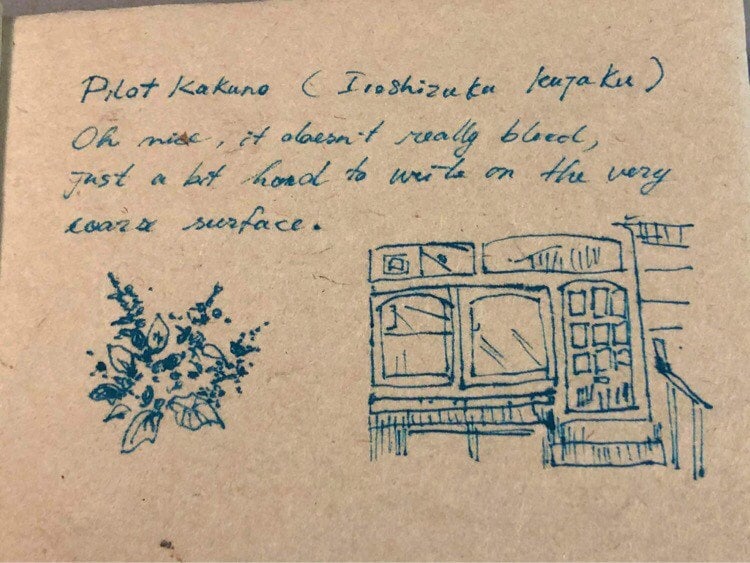 Pilot Kakuno ( Iroshizuku kujaku )
Oh nice, it doesn't really bleed,
just a bit hard to write on the very
coarse surface.